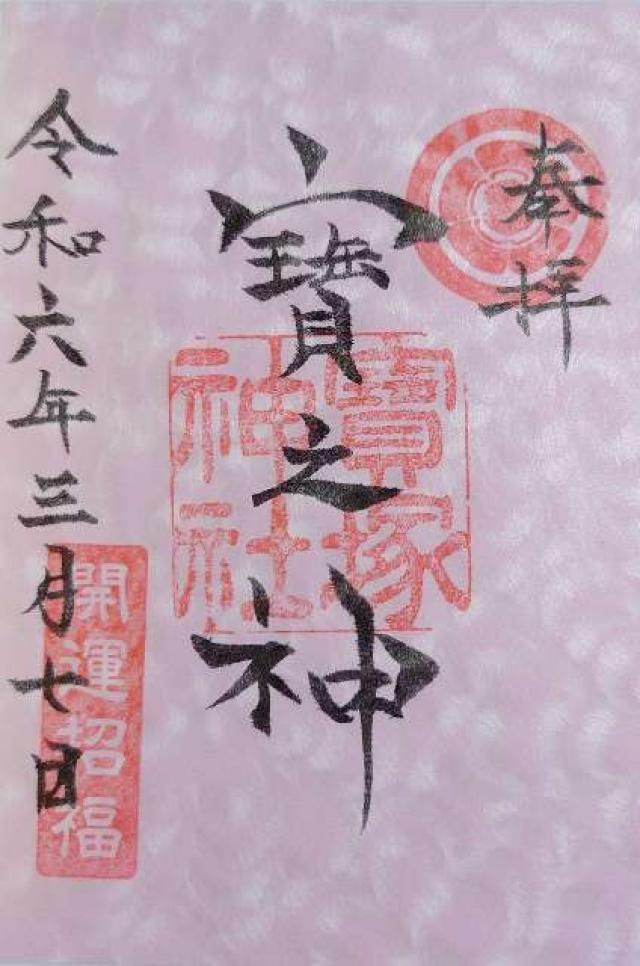 奉拝
寳之神
寳塚
神社
令和六年三月七日
開運招福